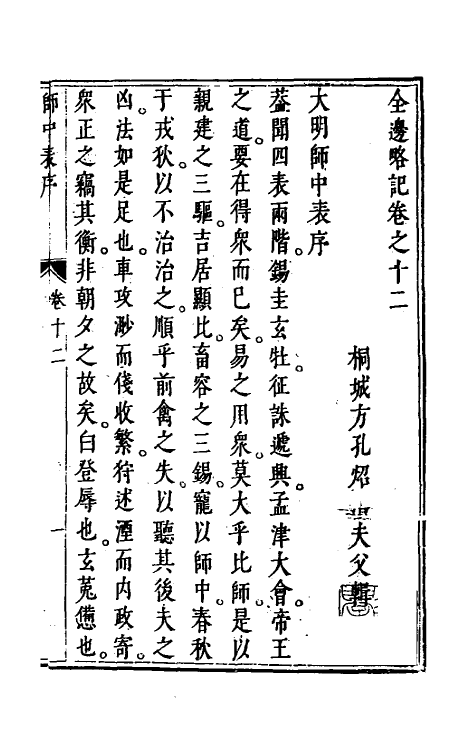 全邊略記卷之十二
桐城方孔炤夫父
大明師中表序
葢聞四表兩階錫圭玄牡征誅遞興孟津大會帝王
之道要在得衆而已矣易之用衆莫大乎比師是以
親建之三驅吉居顯比畜容之三錫寵以師中春秋
于戎狄以不治治之順乎前禽之失以聽其後夫之
凶法如是足也車攻渺而俴收繁狩述湮而内政寄
衆正之竊其衡非朝夕之故矣白登辱也玄菟憊也
師中表序 卷十二 一